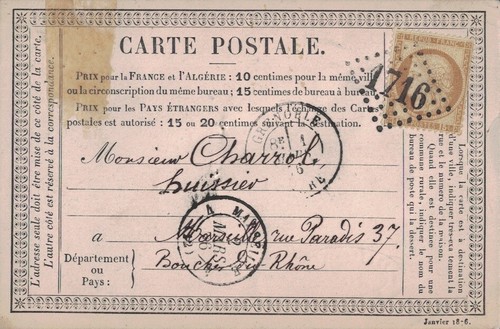 CARTE POSTALE.
PRIX pour la FRANCE et l'ALGÉRIE: 10 centimes pour la même ville
ou la circonscription du même bureau; 15 centimes de bureau à bureau.
PRIX pour les PAYS ÉTRANGERS avec lesquels l'échange des Cartes
postales est autorisé: 15 ou 20 centimes suivant la destination.
REPUB·FRANC
1716
GRENOBLE
Monsieur Charrol
huissier
à Marseille rue Paradis 37.
Bouches du Rhône
Département
ou
Pays:
MARS
L'adresse seule doit être mise de ce côté de la carte.
L'autre côté est réservé à la correspondance.
Lorsque la carte est à destination
d'une ville, indiquer très-exactement la
rue et le numéro de la maison.
Quand elle est destinée pour une
commune rurale, indiquer le nom du
bureau de poste qui la dessert.
Janvier 18-6.